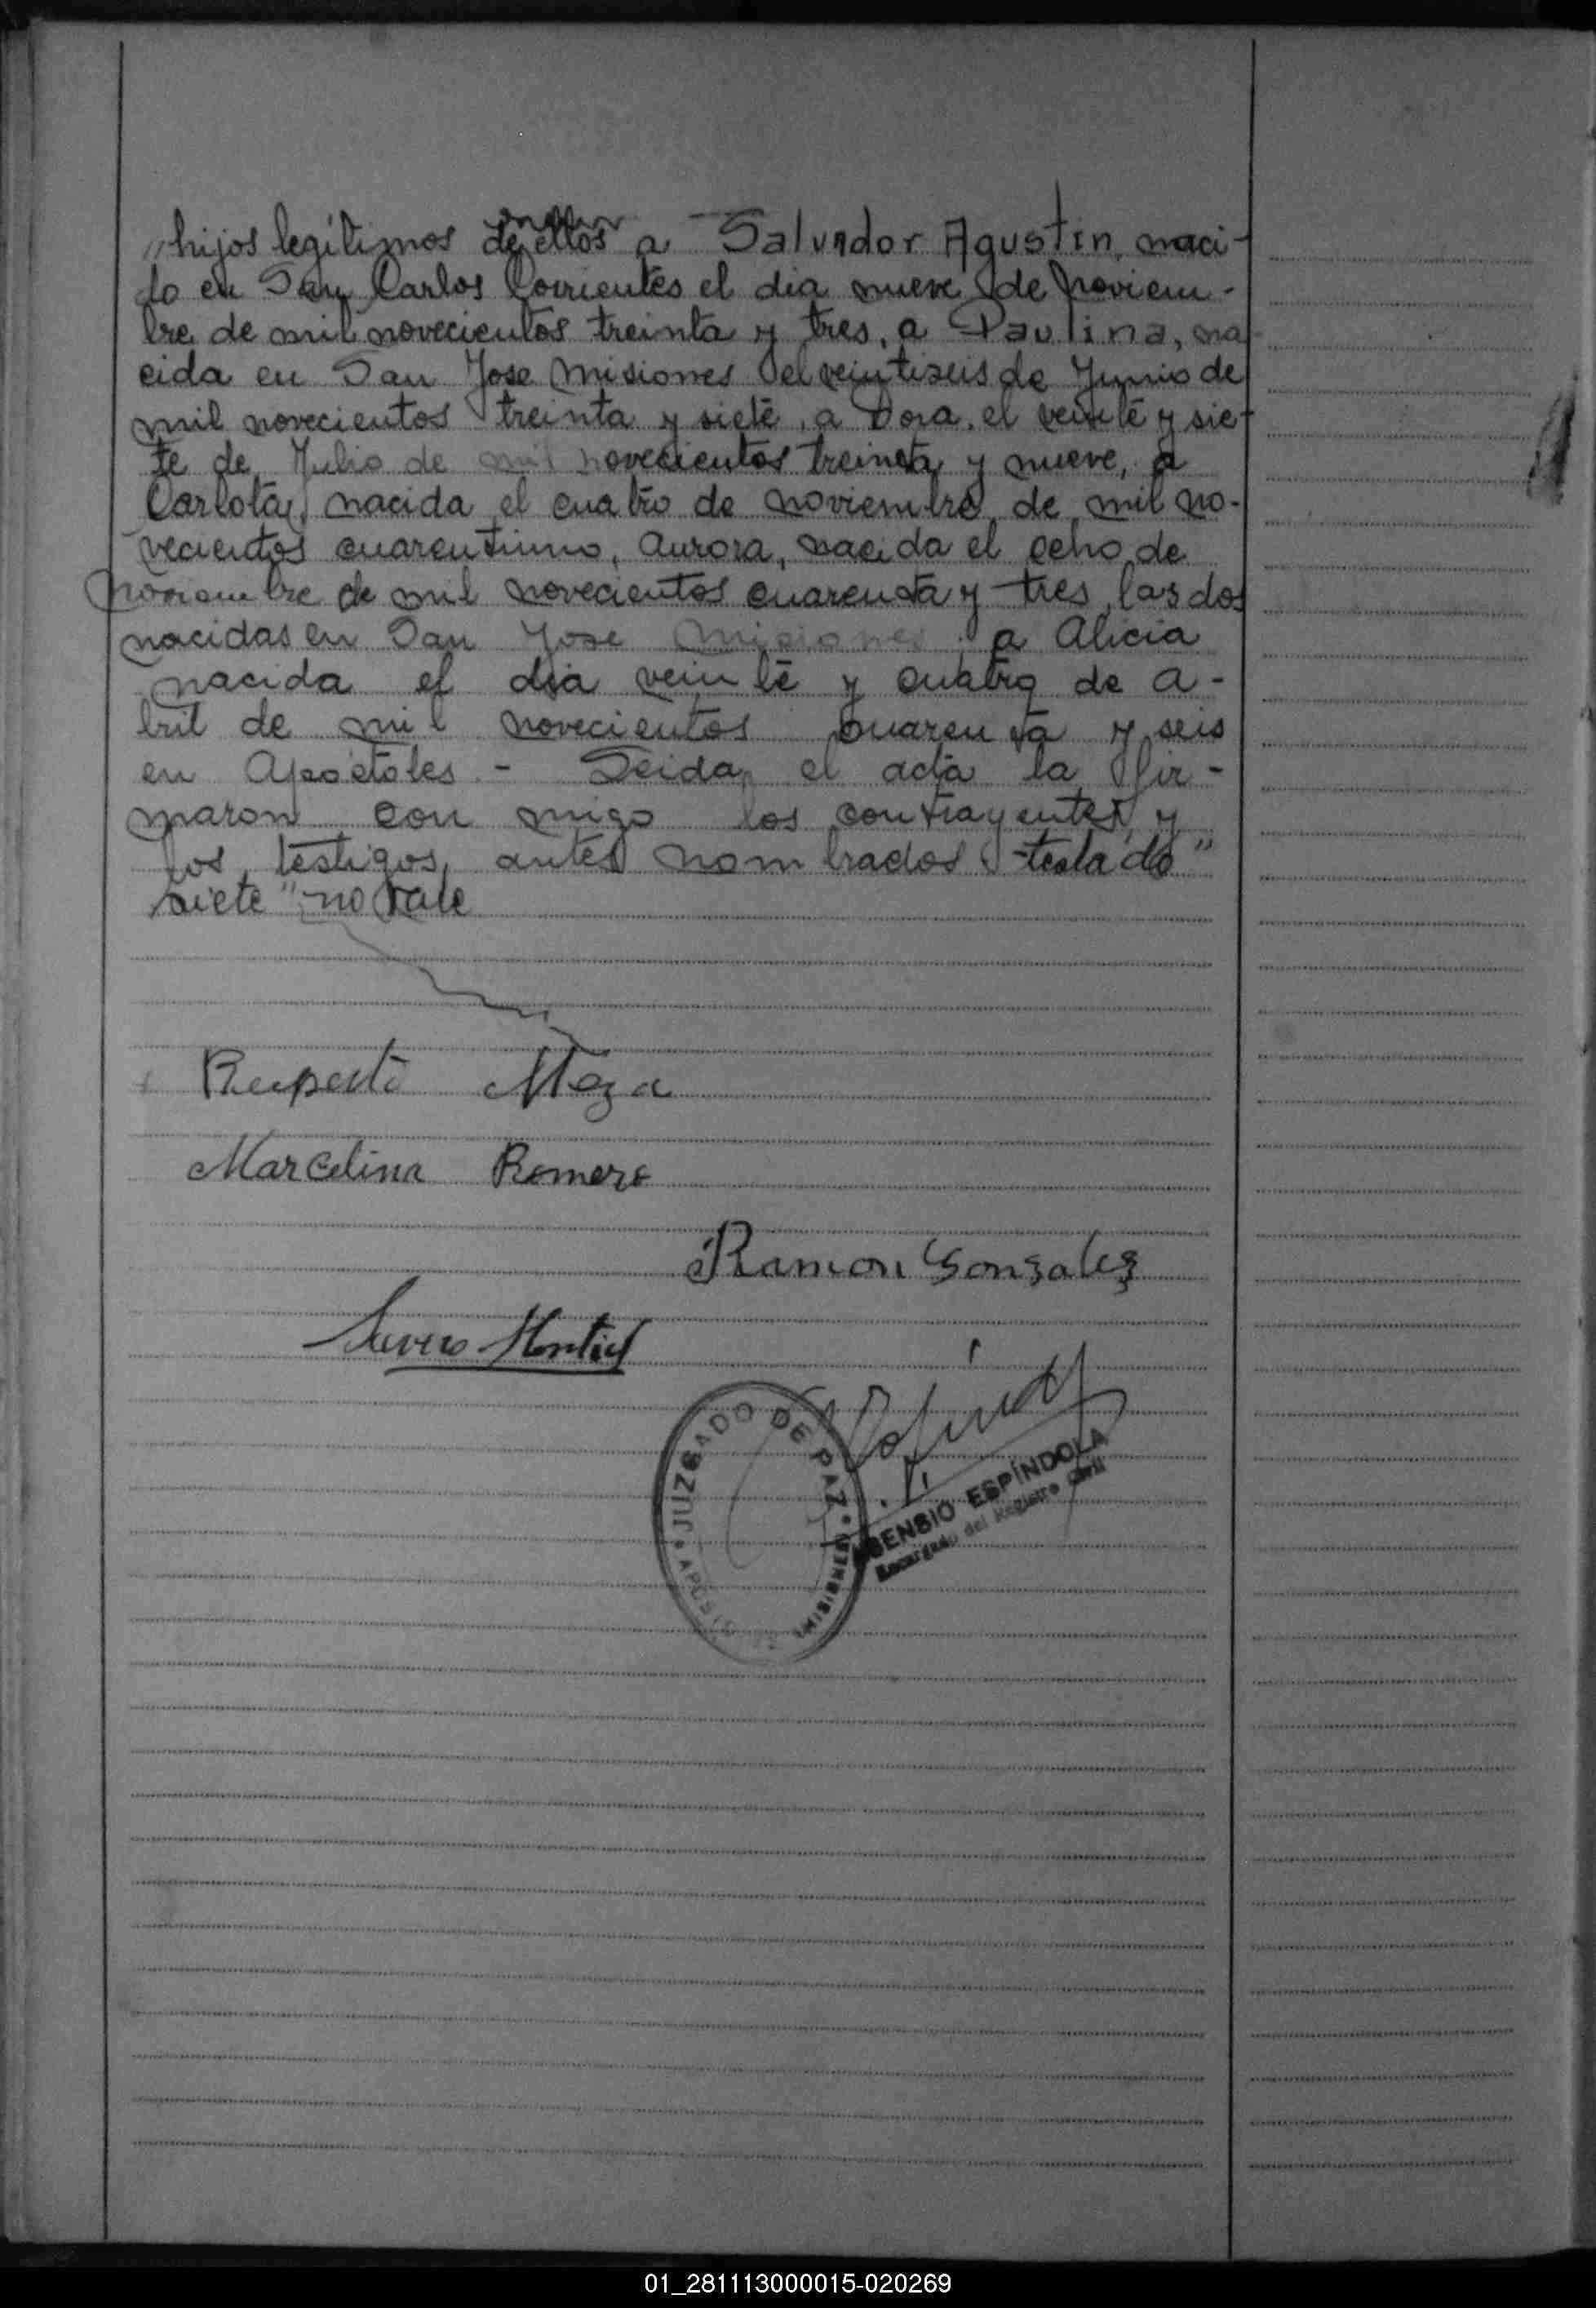 "hijos legítimos de ellos a Salvador Agustin, naci-
do en San Carlos Corrientes el dia nueve de noviem-
bre de mil novecientos treinta y tres, a Paulina, na
cida en San Jose Misiones el veintiseis de Junio de
mil novecientos treinta y siete, a Dora, el veinte y sie-
te de Julio de mil novecientos treinta y nueve, a
Carlota, nacida el cuatro de noviembre de mil no-
vecientos cuarentiuno, Aurora, nacida el ocho de
noviembre de mil novecientos cuarenta y tres, las dos
nacidas en San Jose Misiones, a Alicia
nacida el dia veinte y cuatro de a-
bril de mil novecientos cuarenta y seis
en Apostoles - Leida el acta la fir-
maron con migo los contrayentes y
los testigos antes nombrados - testado "
siete" no vale
Ruperto Meza
Marcelina Romero
Ramon Gonzalez
Severo Montiel
JUZGADO DE PAZ
APOSTOLES MISIONES
ASENSIO ESPÍNDOLA
Encargado del Registro Civil
01_281113000015-020269